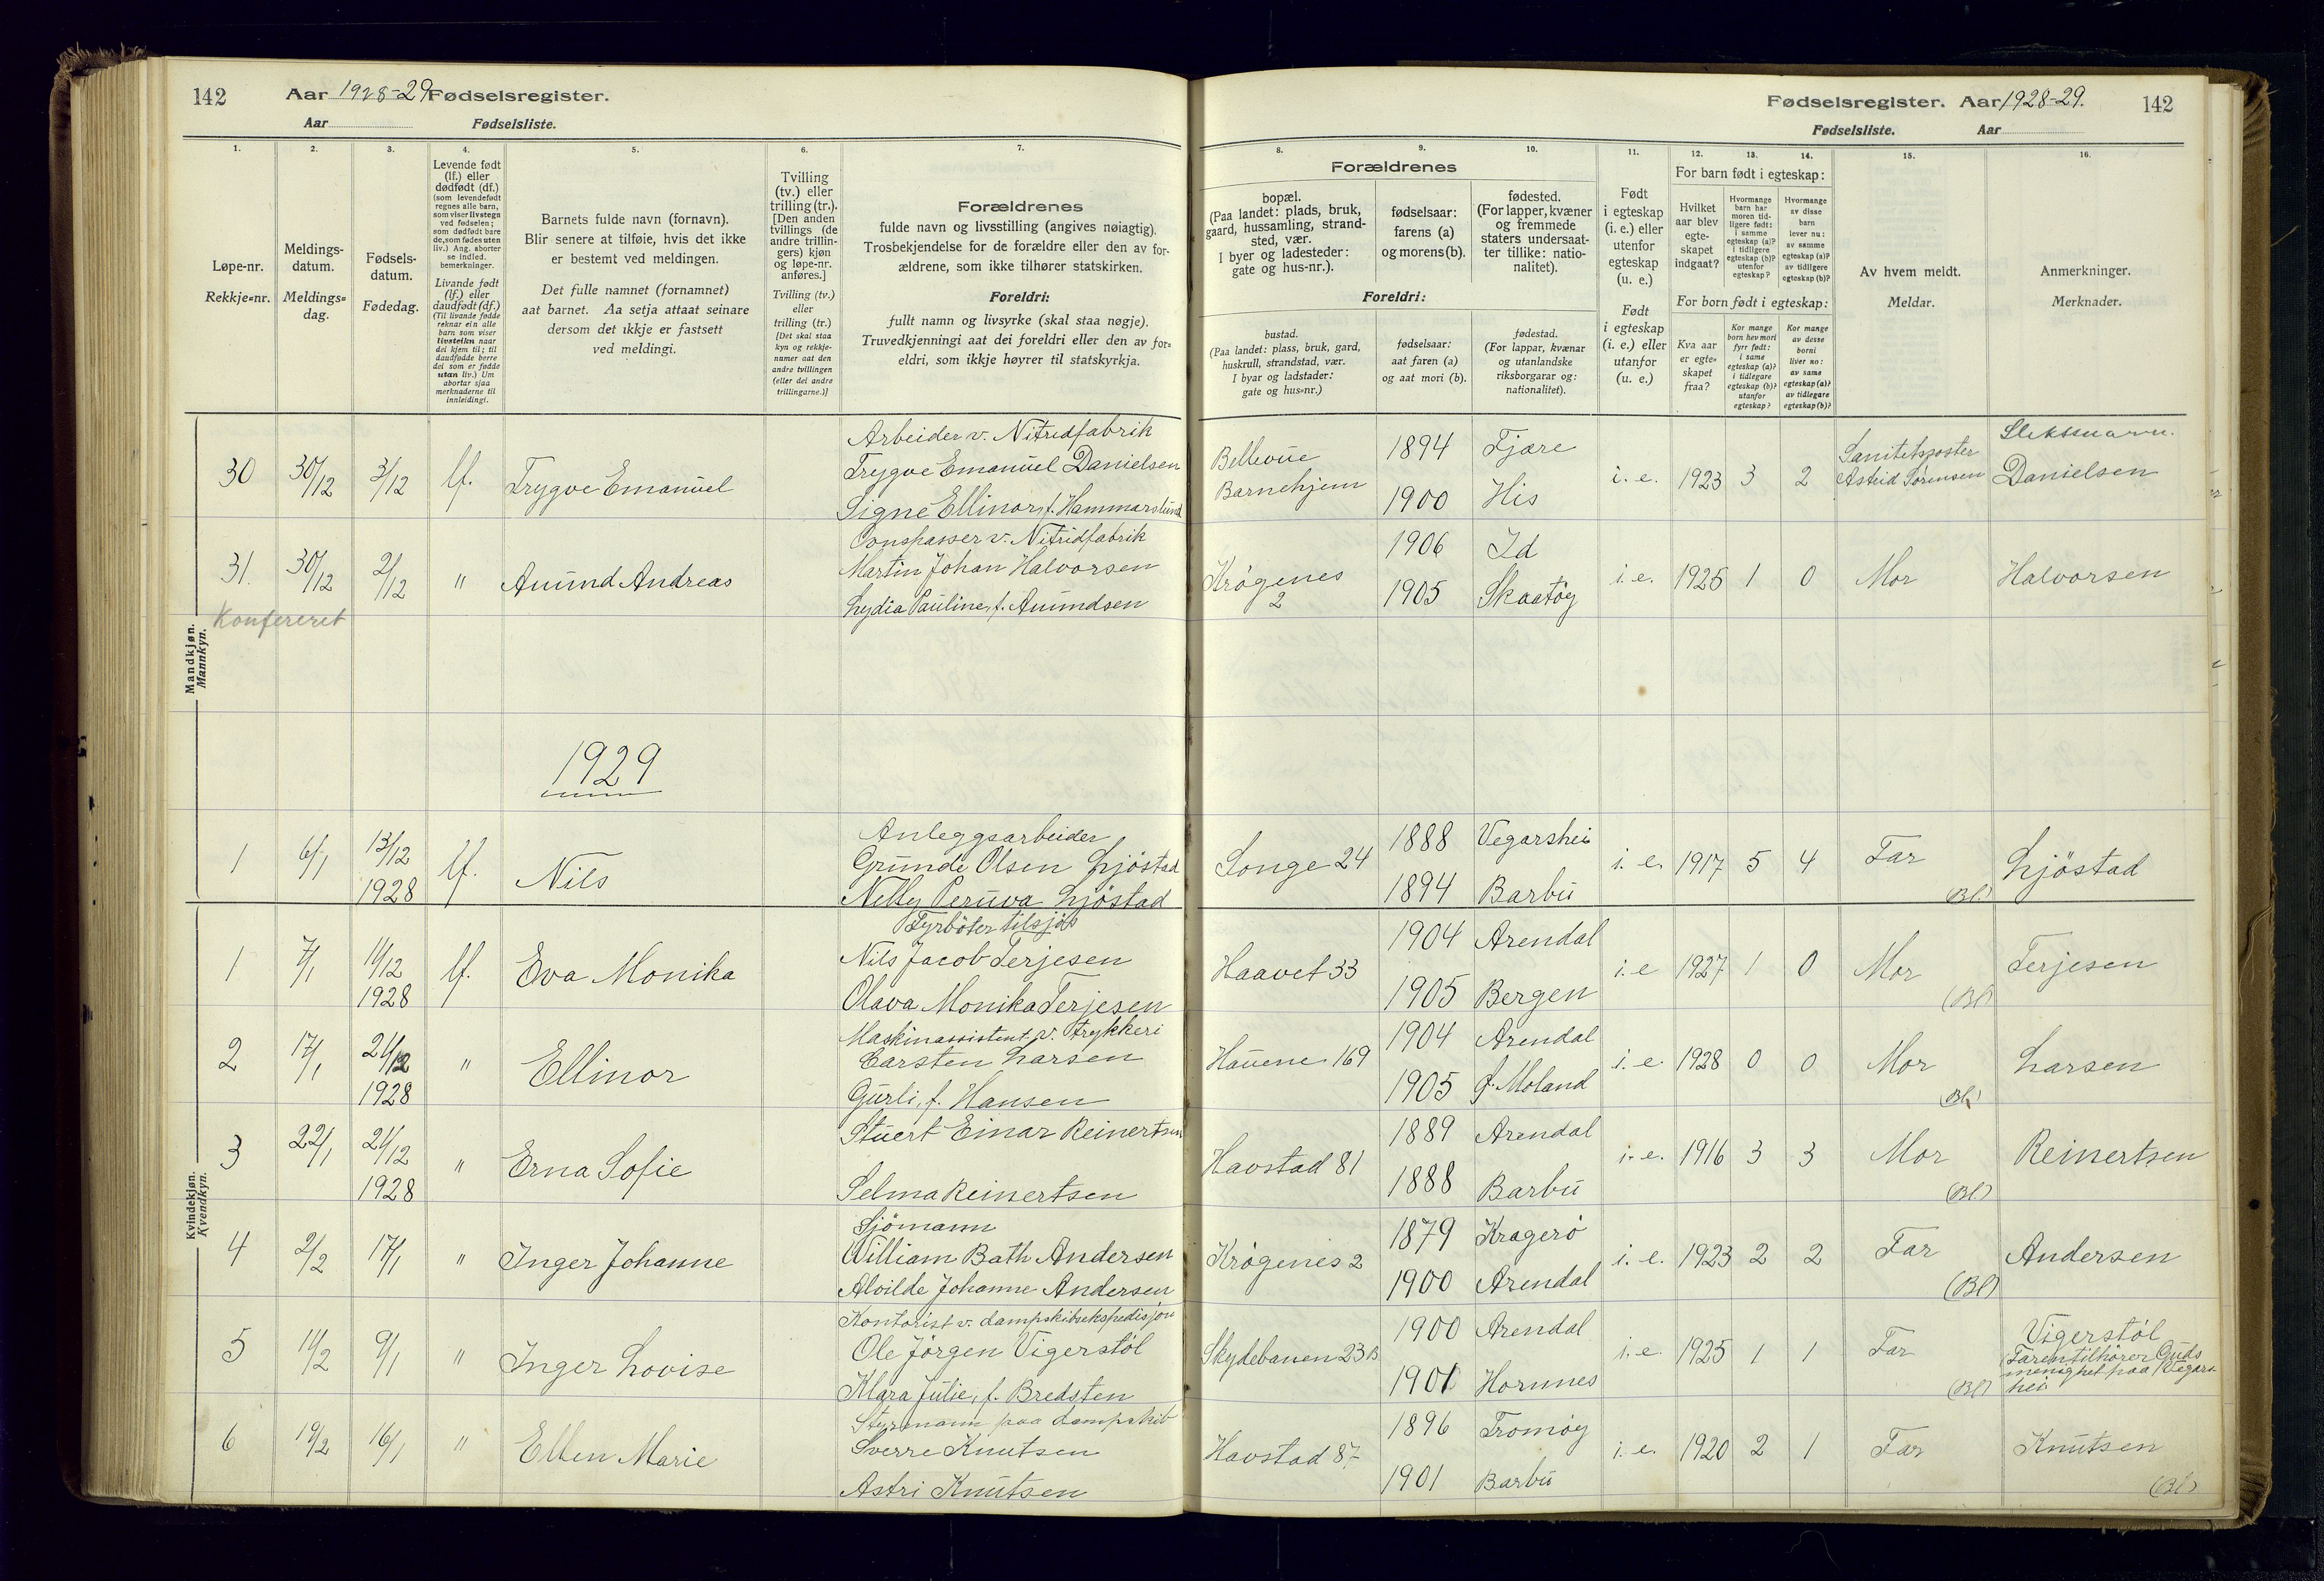 142 Aar 1928-29 Fødselsregister.
Aar Fødselsliste.
Fødselsregister. Aar 1928-29. 142
Fødselsliste. Aar
1. 2. 3. 4. 5. 6. 7. 8. 9. 10. 11. 12. 13. 14. 15. 16.
Løpe-nr.
Rekkje=nr.
Meldings-
datum.
Meldings=
dag.
Fødsels-
datum.
Fødedag.
Levende født
(lf.) eller
dødfødt (df.)
(som levendefødt
regnes alle barn,
som viser livstegn
ved fødselen;
som dødfødt bare
de, som fødes uten
liv.) Ang. aborter
se indled.
bemerkninger.
Livande født
(lf.) eller
daudfødt (df.)
(Til livande fødde
reknar ein alle
born som viser
livsteikn naar
dei kjem til; til
daudfødde berre
dei som er fødde
utan liv.) Um
abortar sjaa
merknaderne til
innleidingi.
Barnets fulde navn (fornavn).
Blir senere at tilføie, hvis det ikke
er bestemt ved meldingen.
Det fulle namnet (fornamnet)
aat barnet. Aa setja attaat seinare
dersom det ikkje er fastsett
ved meldingi.
Tvilling
(tv.) eller
trilling (tr.).
[Den anden
tvillings (de
andre trillin-
gers) kjøn
og løpe-nr.
anføres.]
Tvilling (tv.)
eller
trilling (tr.)
[Det skal staa
kyn og rekkje-
numer aat den
andre tvillingen
(eller dei andre
trillingarne.)]
Forældrenes
fulde navn og livsstilling (angives nøiagtig).
Trosbekjendelse for de forældre eller den av for-
ældrene, som ikke tilhører statskirken.
Foreldri:
fullt namn og livsyrke (skal staa nøgje).
Truvedkjenningi aat dei foreldri eller den av for=
eldri, som ikkje høyrer til statskyrkja.
Forældrenes
bopæl.
(Paa landet: plads, bruk,
gaard, hussamling, strand-
sted, vær.
I byer og ladesteder:
gate og hus-nr.).
fødselsaar:
farens (a)
og morens (b).
fødested.
(For lapper, kvæner
og fremmede
staters undersaat-
ter tillike: natio-
nalitet).
Foreldri:
bustad.
(Paa landet: plass, bruk, gard,
huskrull, strandstad, vær.
I byar og ladstader:
gate og hus=nr.)
fødselsaar:
aat faren (a)
og aat mori (b).
fødestad.
(For lappar, kvænar
og utanlandske
riksborgarar og:
nationalitet).
Født
i egteskap
(i. e.) eller
utenfor
egteskap
(u. e.)
Født
i egteskap
(i. e.) eller
utanfor
(u. e.)
For barn født i egteskap:
Hvilket
aar blev
egte-
skapet
indgaat?
Hvormange
barn har
moren tid-
ligere født:
i samme
egteskap (a)?
i tidligere
egteskap (b)?
utenfor
egteskap?
Hvormange
av disse
barn
lever nu:
av samme
egteskap (a)?
av tidligere
egteskap (b)?
For born født i egteskap:
Kva aar
er egte=
skapet
fraa?
Kor mange
born hev mori
fyrr født:
i same
egteskap (a)?
i tidlegare
egteskap (b)?
utanfor
egteskap?
Kor mange
av desse
borni
liver no:
av same
egteskap (a)?
av tidlegare
egteskap (b)?
Av hvem meldt.
Meldar.
Anmerkninger.
Merknader.
Mandkjøn.
Mannkyn.
Slektsnavn.
Arbeider v. Nitridfabrik
30 30/12 3/12 lf. Trygve Emanuel Trygve Emanuel Danielsen
Signe Ellinor, f. Hammarslund
Bellevue
Barnehjem
1894 Fjære
1900 His
i. e. 1923 3 2 Sanitetssøster
Astrid Sørensen Danielsen
Ovnspasser v. Nitridfabrik
31. 30/12 2/12 " Amund Andreas Martin Johan Halvorsen
Lydia Pauline, f. Amundsen
Krøgenes
2
1906 Id
1905 Skaatøy
i. e. 1925 1 0 Mor Halvorsen
Konfereret
1929
Anleggsarbeider
1 6/1 13/12 lf. Nils Grunde Olsen Ljøstad
1928 Nelly Peruva Ljøstad
Longe 24
1888 Vegarshei
1894 Barbu
i. e. 1917 5 4 Far (Bl.) Ljøstad
Kvindekjøn.
Kvendkyn.
Fyrbøter tilsjøs
1 7/1 11/12 lf. Eva Monika Nils Jacob Terjesen
1928 Olava Monika Terjesen
Haavet 33
1904 Arendal
1905 Bergen
i. e 1927 1 0 Mor (Bl) Terjesen
Maskinassistent v. trykkeri
2 17/1 21/12 " Ellinor Carsten Larsen
1928 Gurli, f. Hansen
Hauene 169
1904 Arendal
1905 Ø. Moland
i. e. 1928 0 0 Mor (Bl.) Larsen
3 22/1 21/12 " Erna Sofie Stuert Einar Reinertsen
1928 Selma Reinertsen
Havstad 81
1889 Arendal
1888 Barbu
i. e. 1916 3 3 Mor (Bl.) Reinertsen
Sjømann
4 2/2 17/1 " Inger Johanne William Bath Andersen
Alvilde Johanne Andersen
Krøgenes 2
1879 Kragerø
1900 Arendal
i. e. 1923 2 2 Far (Bl) Andersen
Kontorist v. dampskibsekspedisjon
5 11/2 9/1 " Inger Lovise Ole Jørgen Vigerstøl
Klara Julie, f. Bredsten
Skydebanen 23 B
1900 Arendal
1901 Hornnes
i. e. 1925 1 1 Far (Bl) Vigerstøl
Faren tilhører Guds
menighet paa Vegars
hei
Styrmann paa dampskib
6 19/2 16/1 " Ellen Marie Sverre Knutsen
Astri Knutsen
Havstad 87.
1896 Tromøy
1901 Barbu
i. e. 1920 2 1 Far Knutsen
(Bl)